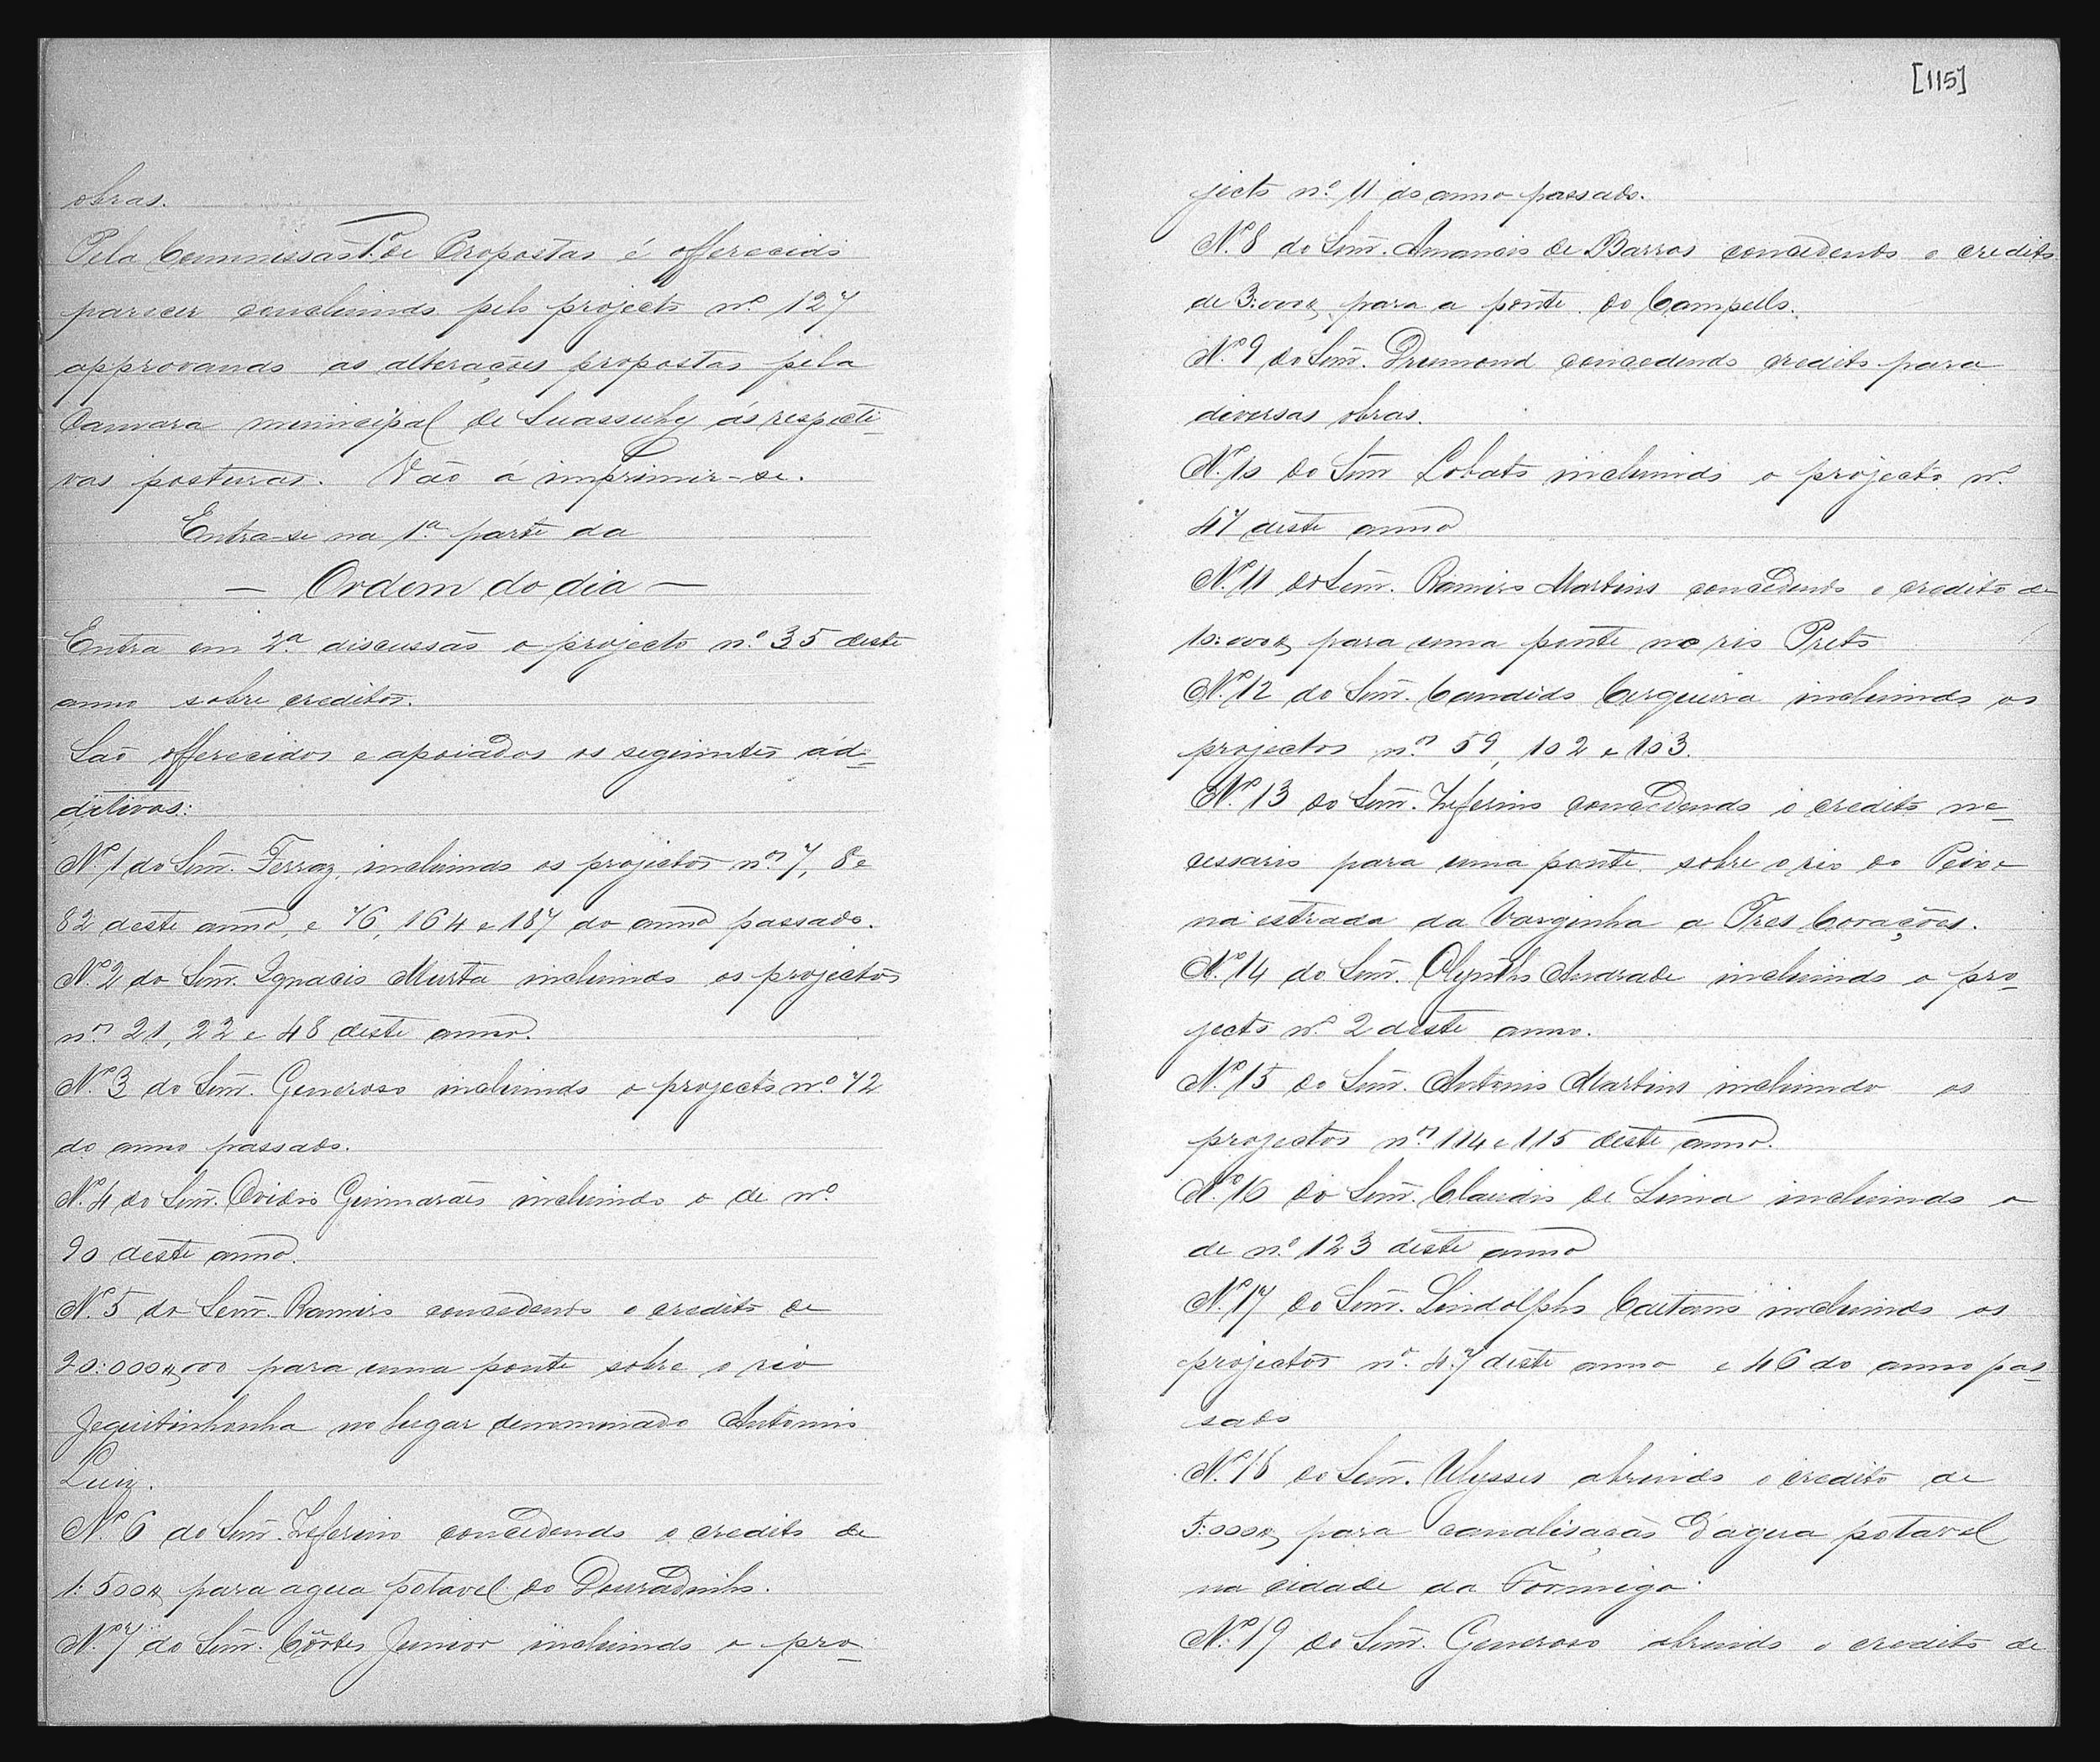 obras.
Pela Commissão 1ª de Propostas é offerecido
parecer concluindo pelo projecto nº 127
approvando as alterações propostas pela
Camara municipal de Suassuhy ás respecti-
vas posturas. Vão á imprimir-se.
Entra-se na 1ª parte da
— Ordem do dia —
Entra em 2ª discussão o projecto nº 35 deste
anno sobre creditos.
São offerecidos e apoiados os seguintes ad-
ditivos:
Nº 1 do Senr. Ferraz, incluindo os projectos nos 7, 8 e
82 deste anno, e 76, 164 e 187 do anno passado.
Nº 2 do Senr. Ignacio Murta incluindo os projectos
nos 21, 22 e 48 deste anno.
Nº 3 do Senr. Generoso incluindo o projecto nº 72
do anno passado.
Nº 4 do Senr. Ovidio Guimarães incluindo o de nº
90 deste anno.
Nº 5 do Senr. Ramiro concedendo o credito de
20:000$000 para uma ponte sobre o rio
Jequitinhonha no lugar denominado Antonio
Luiz.
Nº 6 do Senr. Zeferino concedendo o credito de
1:500$ para agua potavel do Douradinho.
Nº 7 do Senr. Côrtes Junior incluindo o pro-
[115]
jecto nº 11 do anno passado.
Nº 8 do Senr. Amancio de Barros concedendo o credito
de 3:000$ para a ponte do Campello.
Nº 9 do Senr. Drumond concedendo credito para
diversas obras.
Nº 10 do Senr Lobato incluindo o projecto nº
47 deste anno
Nº 11 do Senr. Ramiro Martins concedendo o credito de
10:000$ para uma ponte no rio Preto
Nº 12 do Senr. Candido Cerqueira incluindo os
projectos nos 59, 102 e 103.
Nº 13 do Senr. Zeferino concedendo o credito ne-
cessario para uma ponte sobre o rio do Peixe
na estrada da Varginha a Tres Corações.
Nº 14 do Senr. Olyntho Andrade incluindo o pro-
jecto nº 2 deste anno.
Nº 15 do Senr. Antonio Martins incluindo os
projectos nos 114 e 115 deste anno.
Nº 16 do Senr. Claudio de Lima incluindo o
de nº 123 deste anno
Nº 17 do Senr. Lindolpho Caetano incluindo os
projectos nº 47 deste anno e 46 do anno pas-
sado
Nº 18 do Senr. Ulysses abrindo o credito de
5:000$ para canalisação d'agua potavel
na cidade da Formiga.
Nº 19 do Senr. Generoso abrindo o credito de